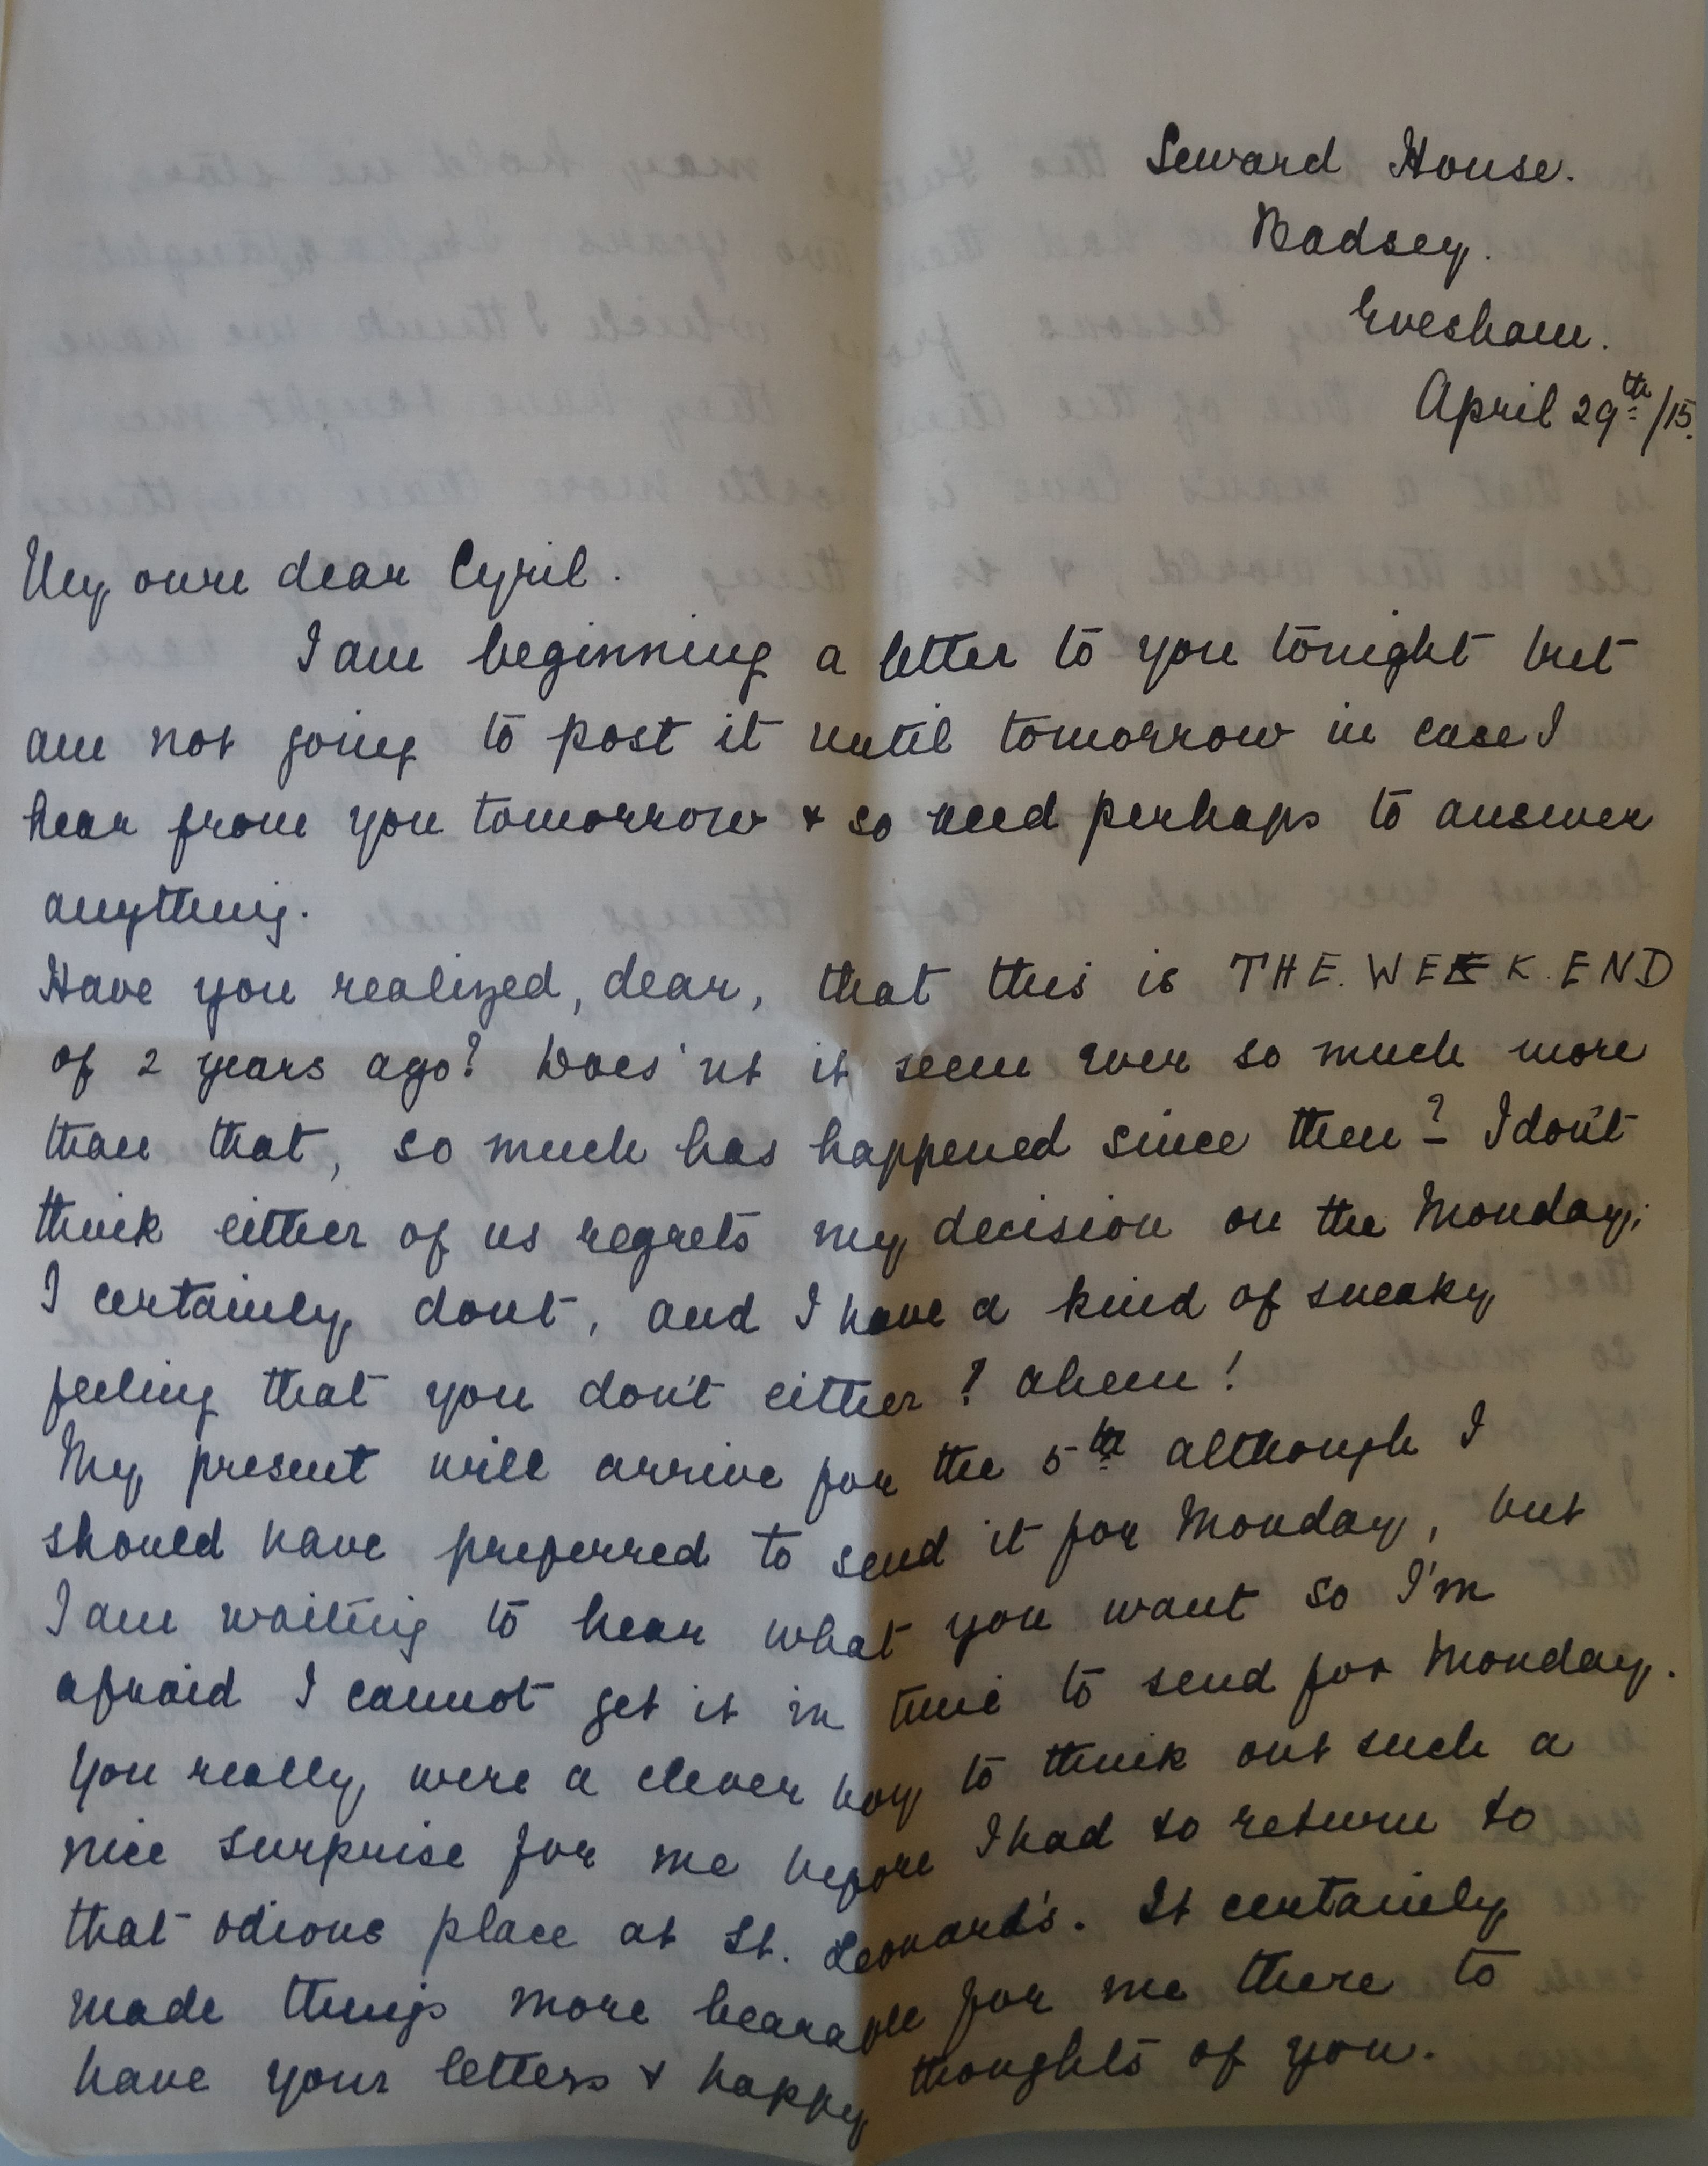 Seward House.
Badsey.
Evesham.
April 29th/15.
My own dear Cyril.
I am beginning a letter to you tonight but
am not going to post it until tomorrow in case I
hear from you tomorrow & so need perhaps to answer
anything.
Have you realized, dear, that this is THE. WEEK. END
of 2 years ago? Does'nt it seem ever so much more
than that, so much has happened since then? I don't
think either of us regrets my decision on the Monday;
I certainly dont, and I have a kind of sneaky
feeling that you don't either? ahem!
My present will arrive for the 5th although I
should have preferred to send it for Monday, but
I am waiting to hear what you want so I'm
afraid I cannot get it in time to send for Monday.
You really were a clever boy to think out such a
nice surprise for me before I had to return to
that odious place at St. Leonard's. It certainly
made things more bearable for me there to
have your letters & happy thoughts of you.